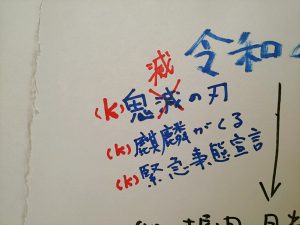 令和
減
(K)鬼滅の刃
(K)麒麟がくる
(K)緊急事態宣言